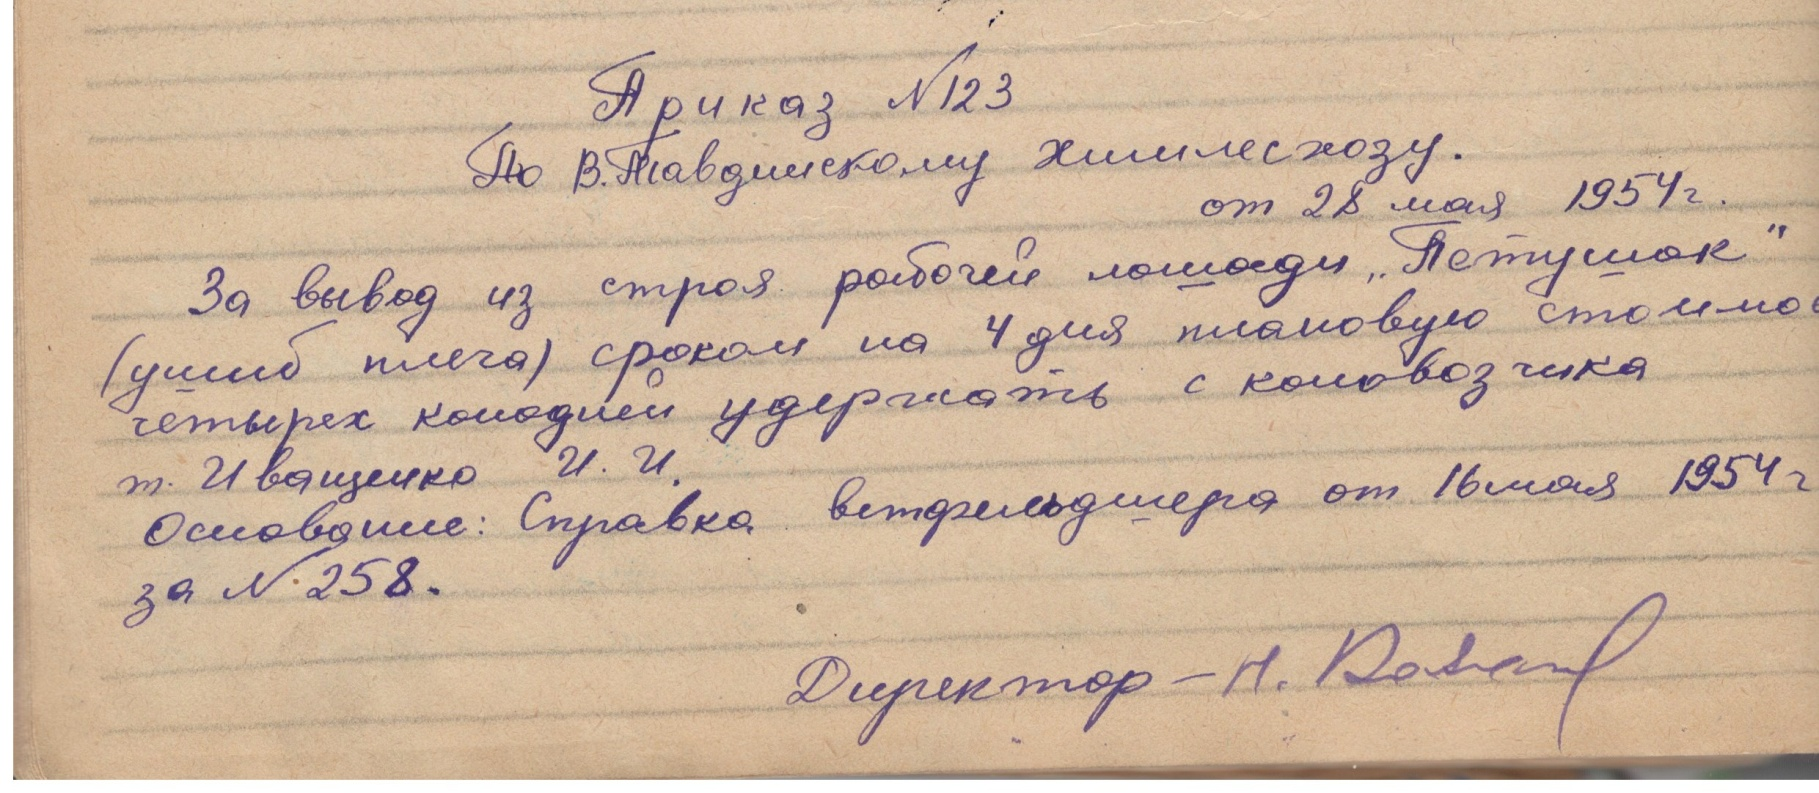 Приказ N 123
По В.Тавдинскому химлесхозу.
от 28 мая 1954 г.
За вывод из строя рабочей лошади „Петушок"
(ушиб плеча) сроком на 4 дня плановую стоимос
четырех конодней удержать с коновозчика
т. Иващенко И. И.
Основание: Справка ветфельдшера от 16 мая 1954 г
за N 258.
Директор – Н.